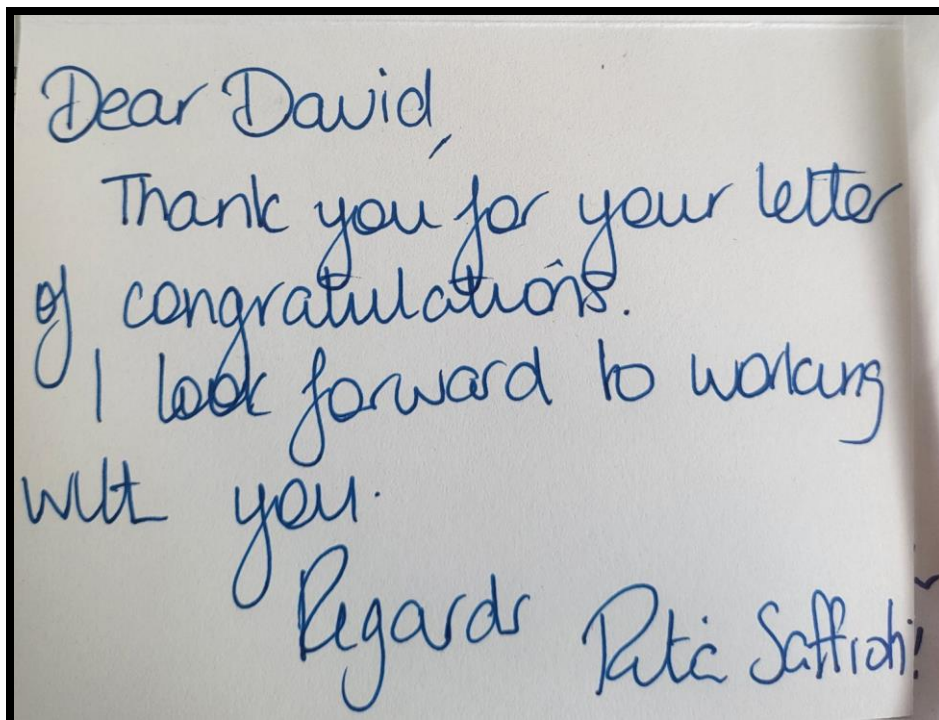 Dear David,
Thank you for your letter
of congratulations.
I look forward to working
with you.
Regards